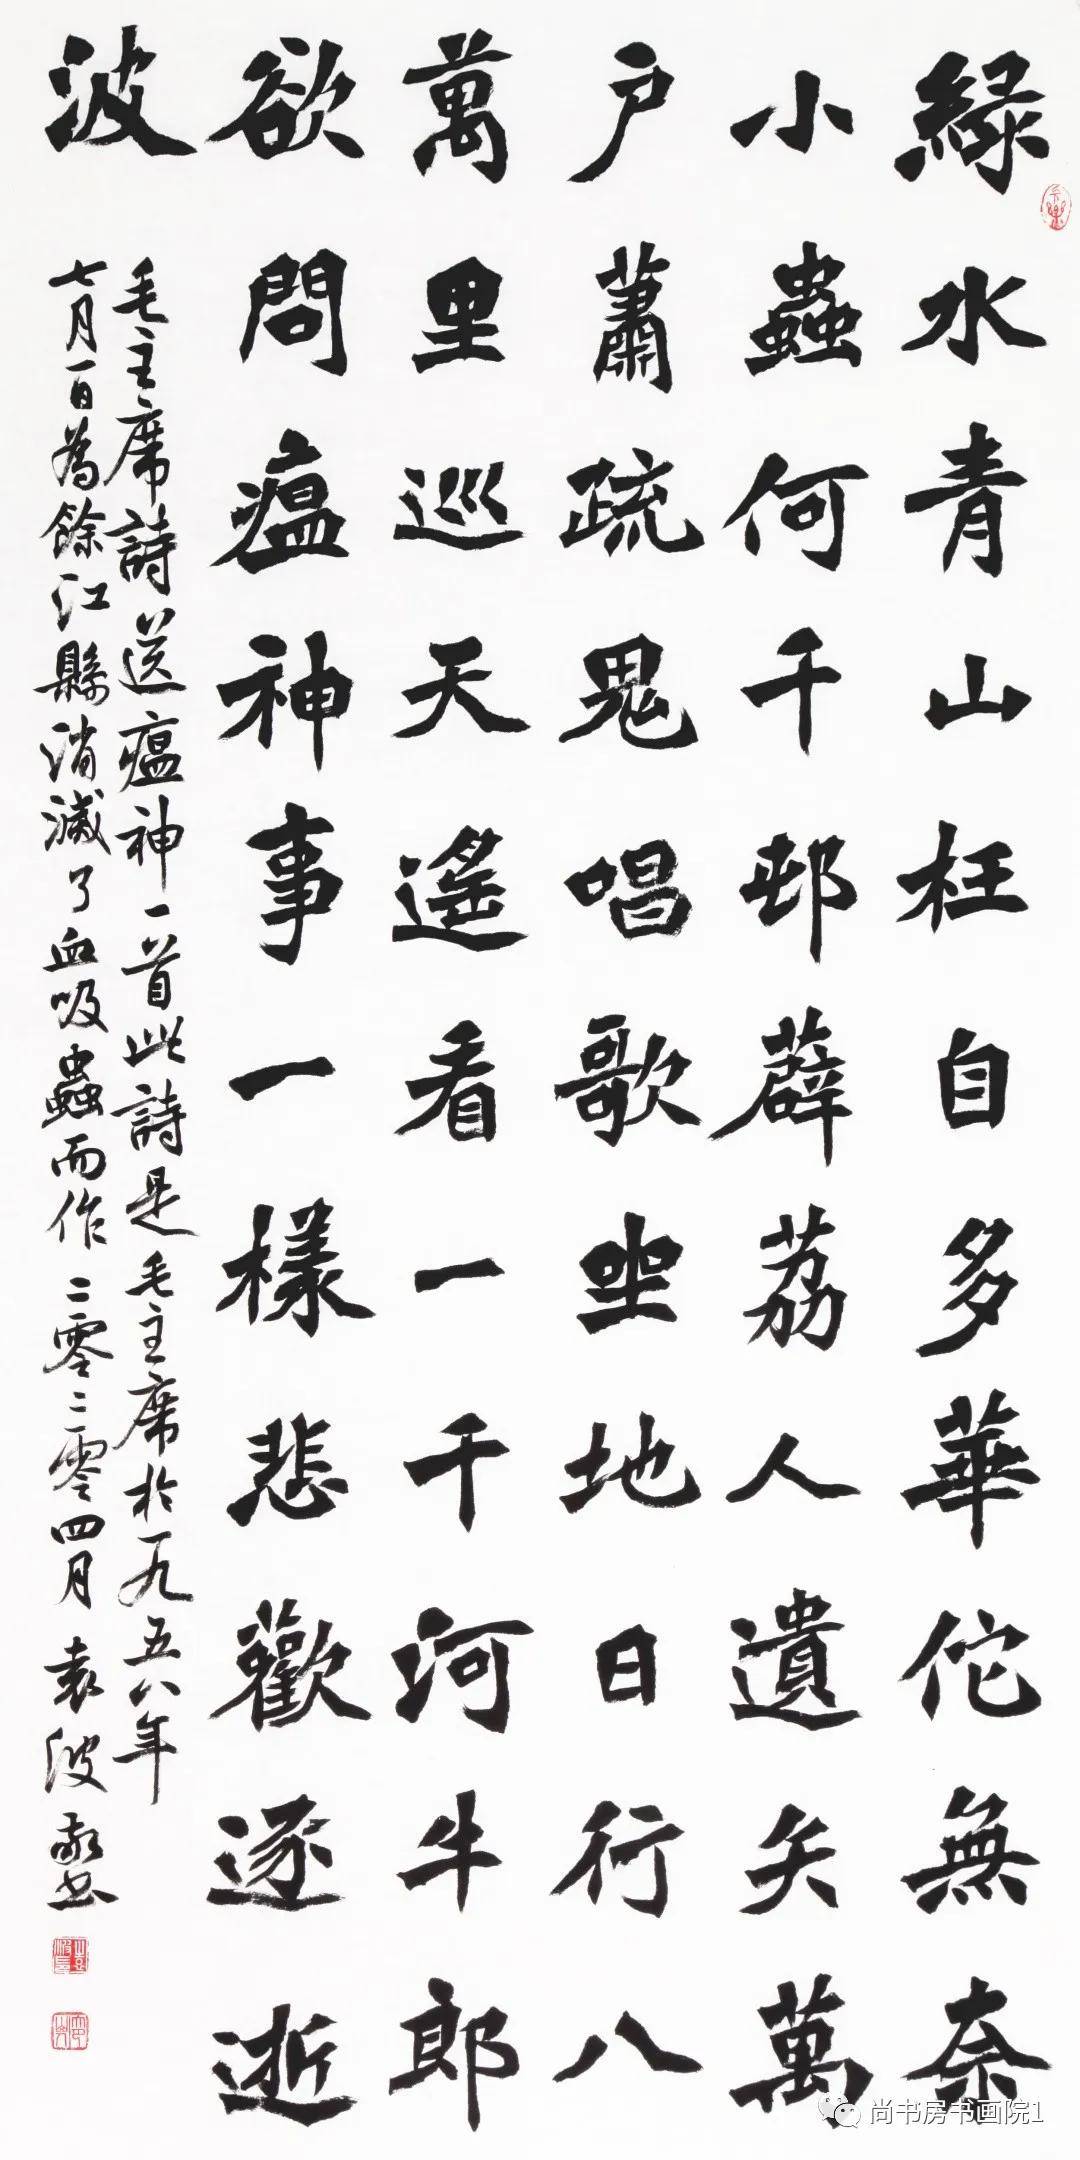 綠水青山枉自多華佗無奈
小蟲何千邨薜荔人遺矢萬
户蕭疏鬼唱歌坐地日行八
萬里巡天遙看一千河牛郎
欲問瘟神事一樣悲歡逐逝
波
毛主席詩送瘟神一首此詩是毛主席於一九五八年
七月一日為餘江縣消滅了血吸蟲而作二零二零四月袁波敬书
尚书房书画院1